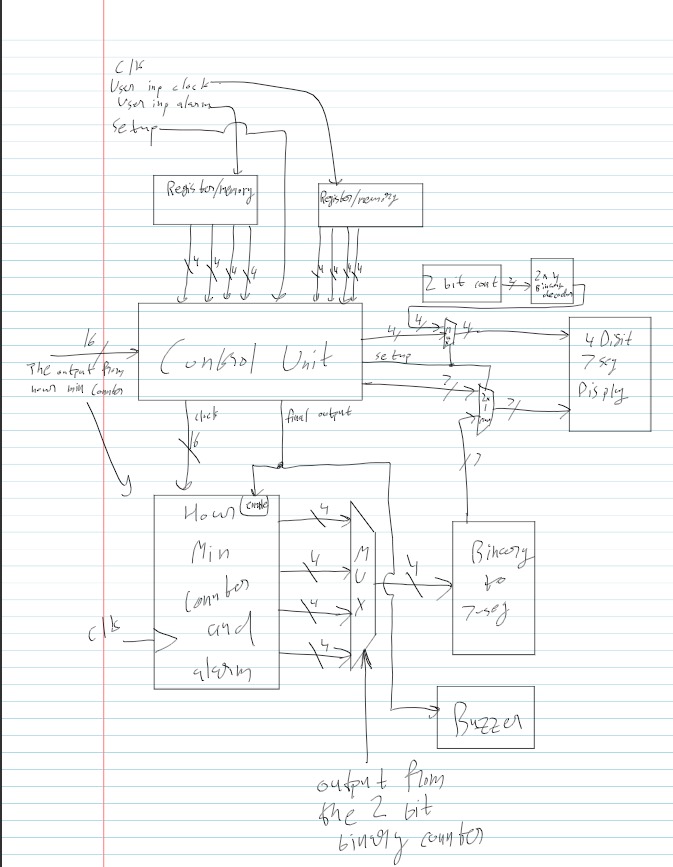 Clk
User inp clock
User inp alarm
Setup
Register/memory
Register/memory
4 4 4 4
4 4 4 4
2 bit cont
2
2x4
Binary
decoder
16
The output from
hours min Counter
Control Unit
4
4
4
setup
7
2x1
mux
7
4 Digit
7 seg
Display
clock
16
final output
7
Hour
enable
Min
Counter
and
alarm
clk
4
4
4
4
MUX
4
Binary
to
7-seg
Buzzer
output from
the 2 bit
binary counter